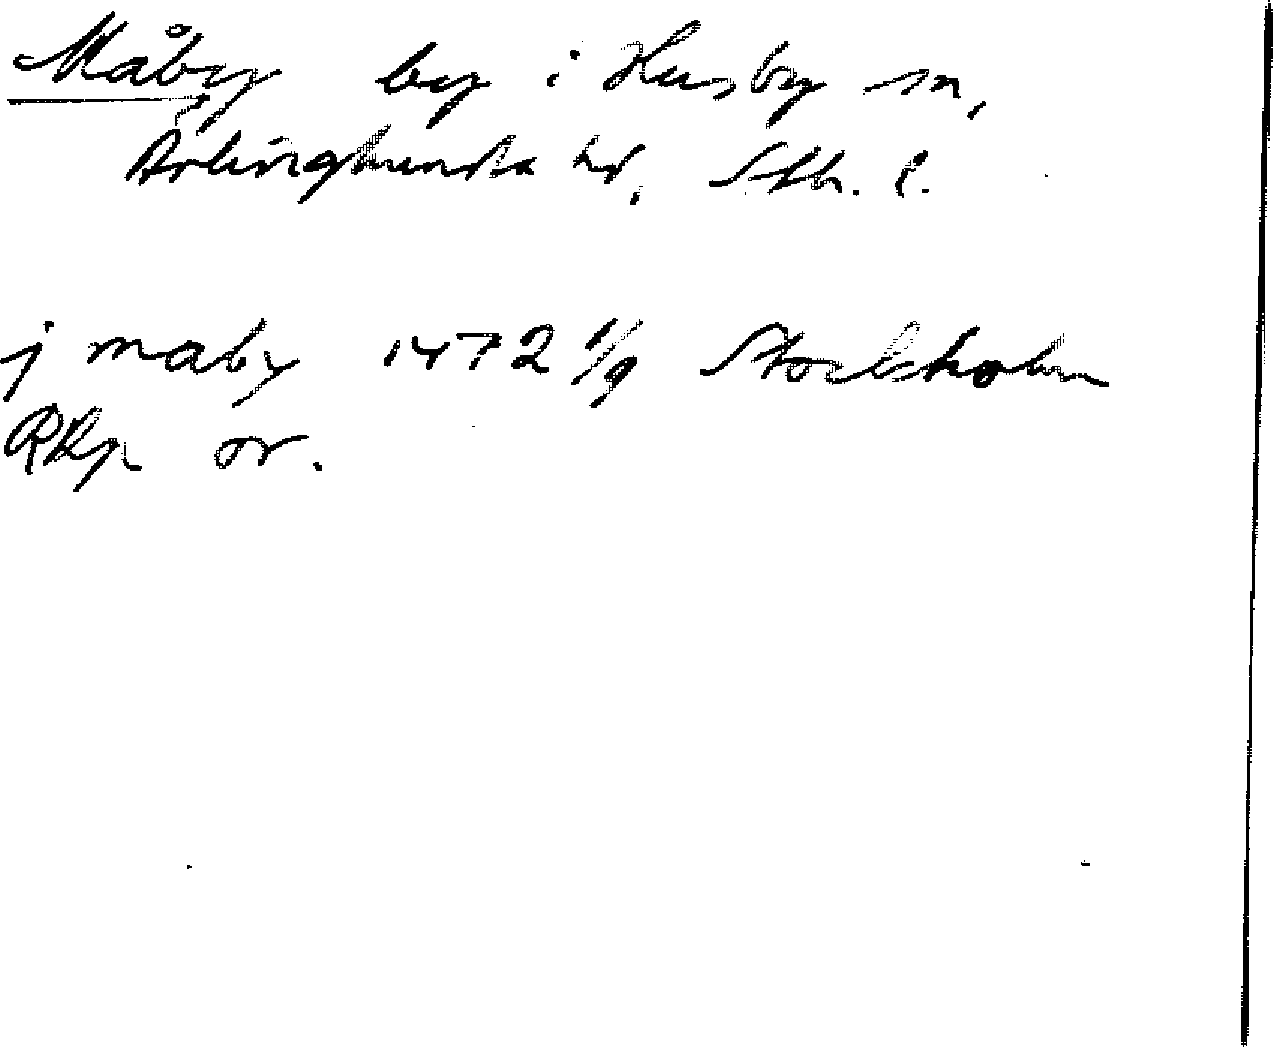 Måby by i Husby sn,
Ärlinghundra hd, Sthlm. l.
j maby 1472 1/9 Stockholm
RKp or.